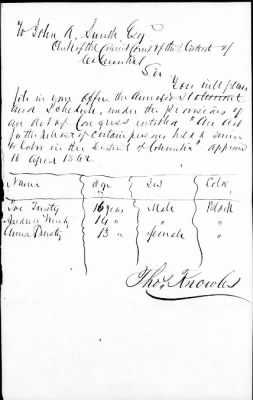 To John A. Smith Esq
Clerk of the Circuit Court of the District of
Columbia
Sir
You will please
file in your office the annexed Statement
and Schedule, under the Provisions of
an Act of Congress entitled "An Act
for the release of certain persons held to service
or labor in the District of Columbia" approved
16 April 1862
Names Age Sex Color
Joe Trusty 16 years Male Black
Andrew Trusty 14 " " "
Anna Trusty 13 " female "
Thos. Knowles